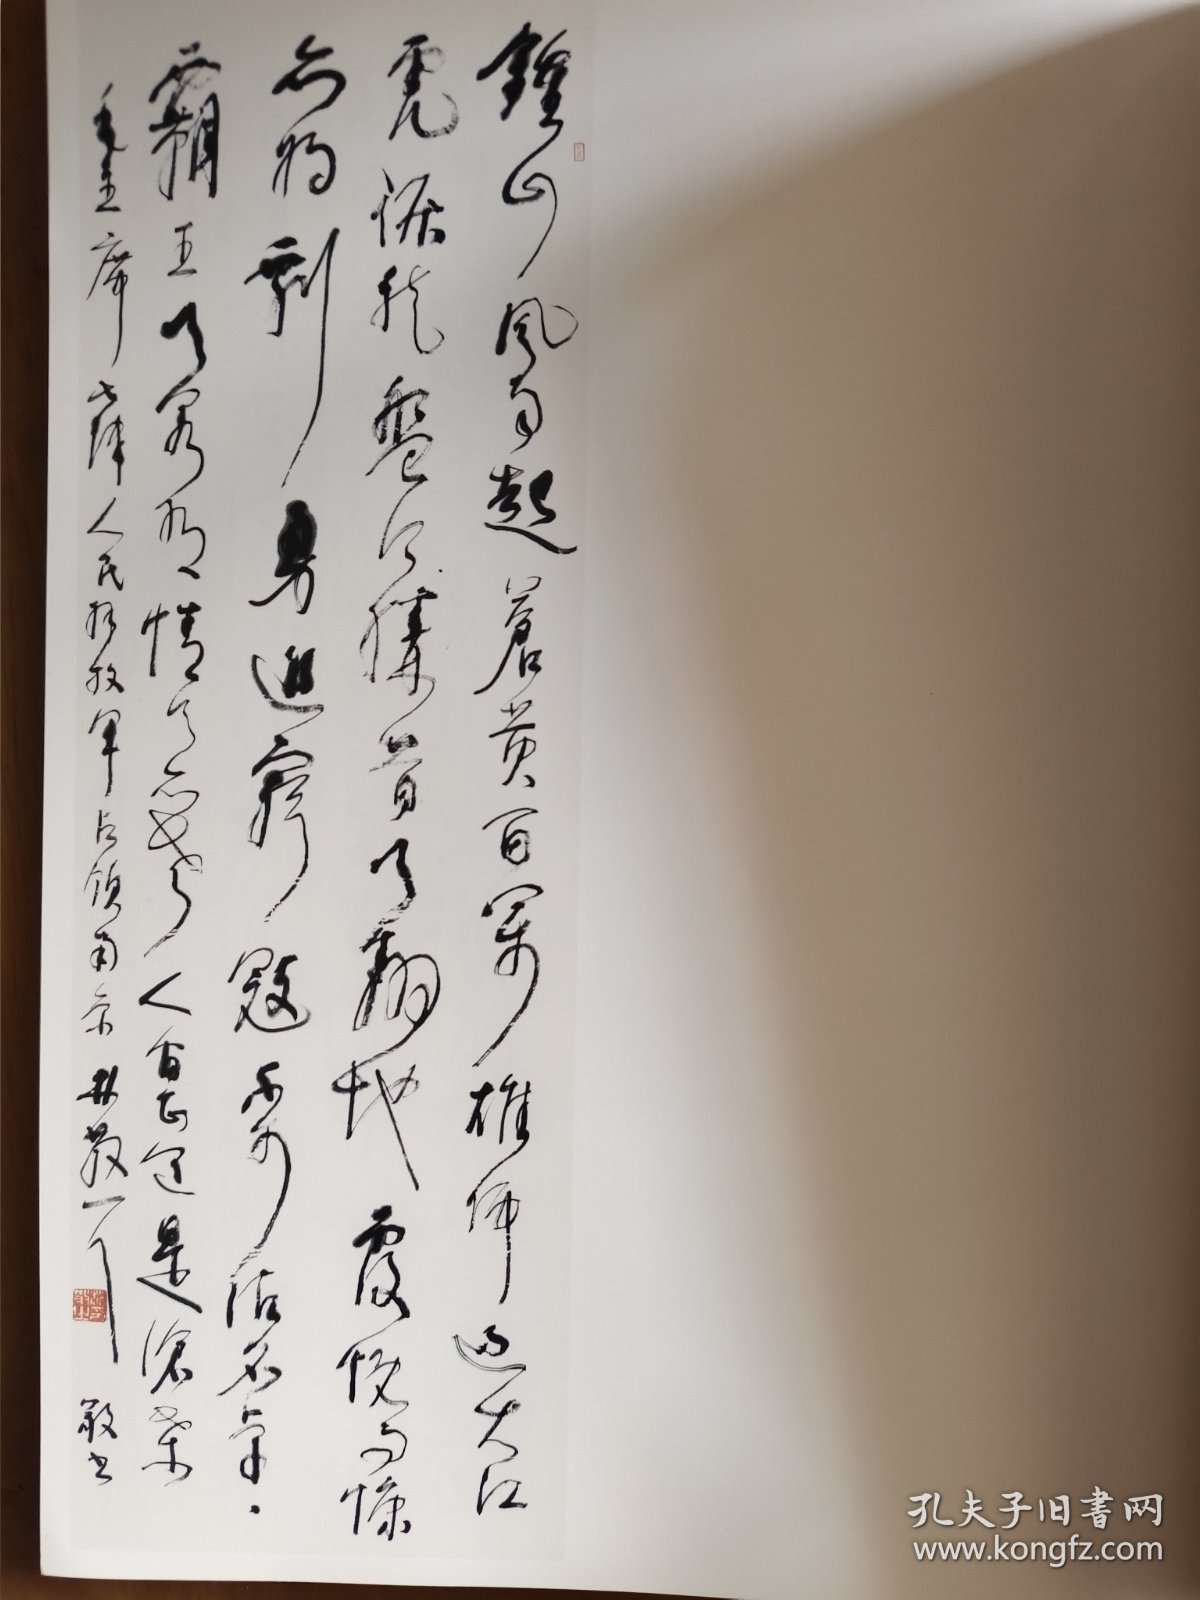 鍾山風雨起蒼黄百萬雄師過大江
虎踞龍盤今勝昔天翻地覆慨而慷
宜將剩勇追窮寇不可沽名學
霸王天若有情天亦老人間正道是滄桑
毛主席七律人民解放軍占領南京 林散耳 敬書
孔夫子旧书网
www.kongfz.com